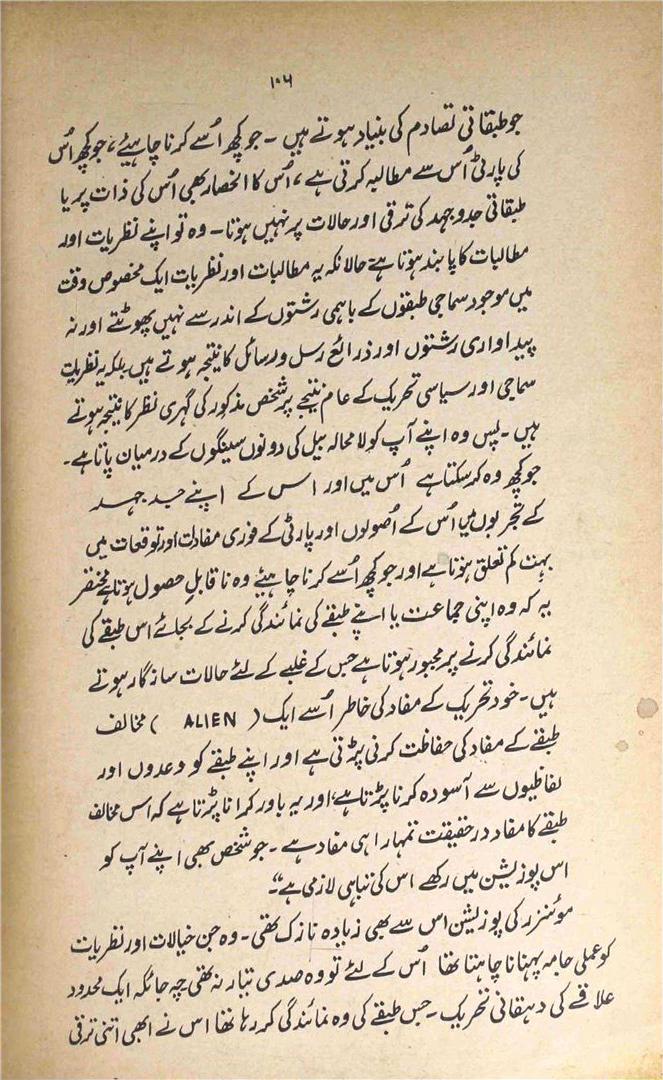 ۱۰۶
جو طبقاتی تصادم کی بنیاد ہوتے ہیں ۔ جو کچھ اُسے کرنا چاہیئے ، جو کچھ اُس
کی پارٹی اُس سے مطالبہ کرتی ہے ، اُس کا انحصار بھی اُس کی ذات پر یا
طبقاتی جدوجہد کی ترقی اور حالات پر نہیں ہوتا ۔ وہ تو اپنے نظریات اور
مطالبات کا پابند ہوتا ہے حالانکہ یہ مطالبات اور نظریات ایک مخصوص وقت
میں موجود سماجی طبقوں کے باہمی رشتوں کے اندر سے نہیں پھوٹتے اور نہ
پیداواری رشتوں اور ذرائع رسل و رسائل کا نتیجہ ہوتے ہیں بلکہ یہ نظریات
سماجی اور سیاسی تحریک کے عام نتیجے پر شخص مذکور کی گہری نظر کا نتیجہ ہوتے
ہیں ۔ پس وہ اپنے آپ کو لا محالہ بیل کی دونوں سینگوں کے درمیان پاتا ہے ۔
جو کچھ وہ کر سکتا ہے اُس میں اور اس کے اپنے جد جہد
کے تجربوں میں اُس کے اُصولوں اور پارٹی کے فوری مفادات اور توقعات میں
بہت کم تعلق ہوتا ہے اور جو کچھ اُسے کرنا چاہیئے وہ ناقابلِ حصول ہوتا ہے مختصر
یہ کہ وہ اپنی جماعت یا اپنے طبقے کی نمائندگی کرنے کے بجائے اس طبقے کی
نمائندگی کرنے پر مجبور ہوتا ہے جس کے غلبے کے لئے حالات سازگار ہوتے
ہیں ۔ خود تحریک کے مفاد کی خاطر اُسے ایک ( ALIEN ) مخالف
طبقے کے مفاد کی حفاظت کرنی پڑتی ہے اور اپنے طبقے کو وعدوں اور
لفاظیوں سے آسودہ کرنا پڑتا ہے ، اور یہ باور کرانا پڑتا ہے کہ اس مخالف
طبقے کا مفاد درحقیقت تمہارا ہی مفاد ہے ۔ جو شخص بھی اپنے آپ کو
اس پوزیشن میں رکھے اس کی تباہی لازمی ہے“ ۔
موئنزر کی پوزیشن اس سے بھی زیادہ نازک تھی ۔ وہ جن خیالات اور نظریات
کو عملی جامہ پہنانا چاہتا تھا اُس کے لئے تو وہ صدی تیار نہ تھی چہ جائکہ ایک محدود
علاقے کی دہقانی تحریک ۔ جس طبقے کی وہ نمائندگی کر رہا تھا اس نے ابھی اتنی ترقی